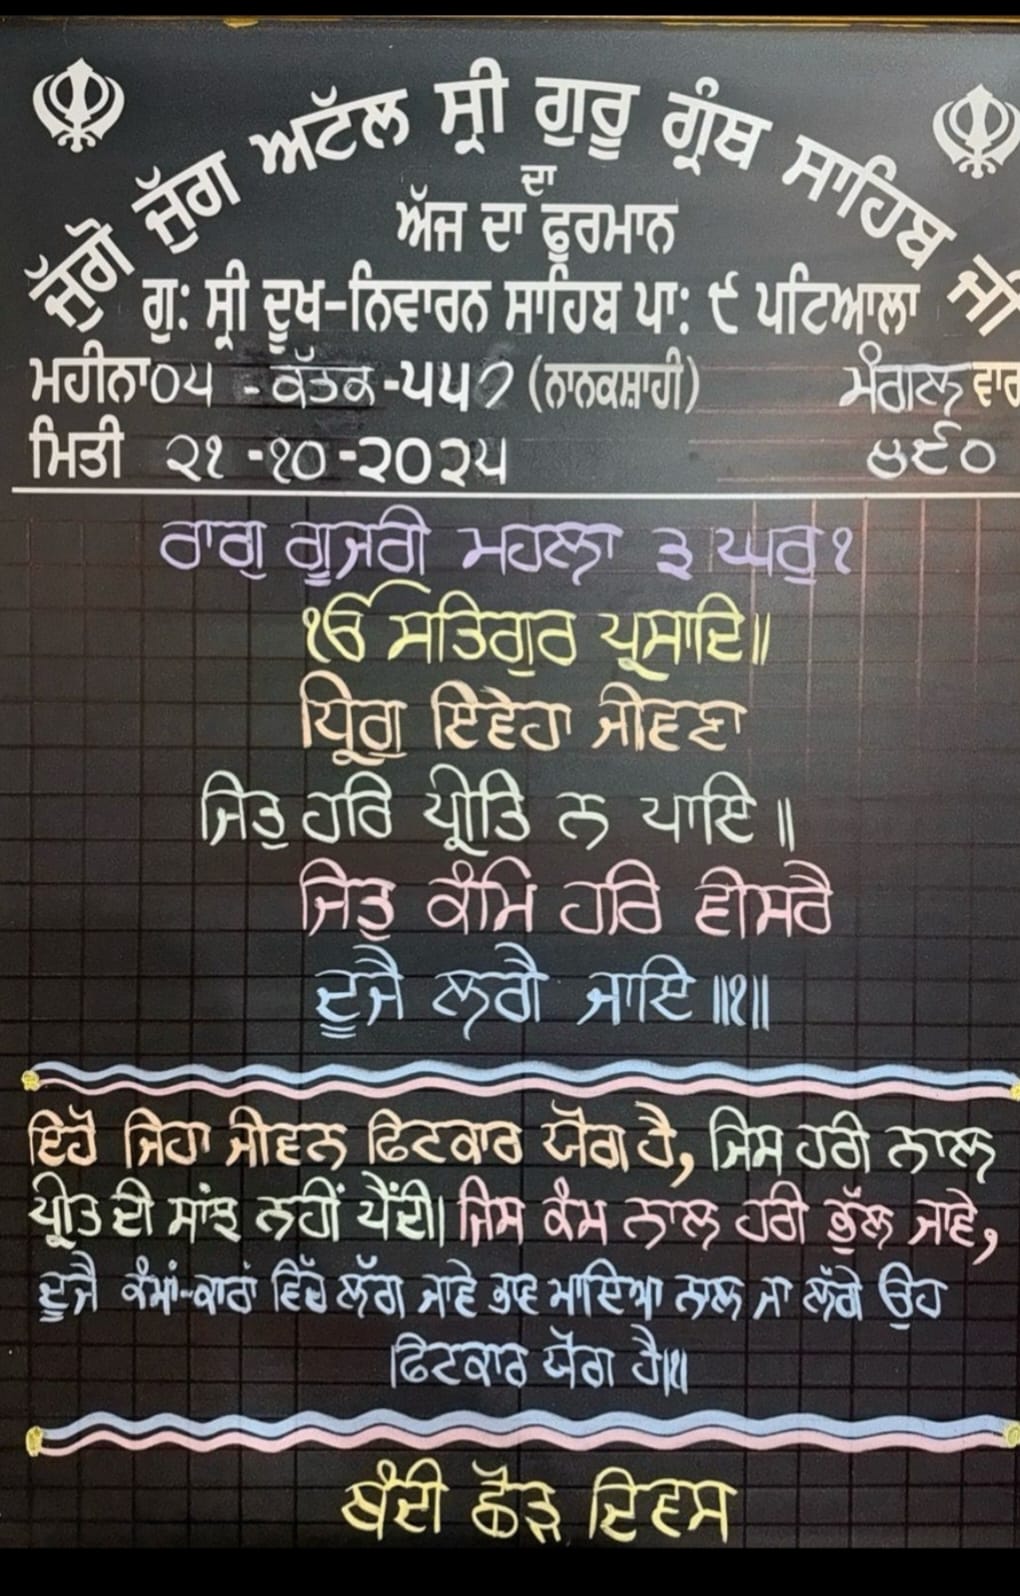 ਜੁੱਗੋ ਜੁੱਗ ਅਟੱਲ ਸ੍ਰੀ ਗੁਰੂ ਗ੍ਰੰਥ ਸਾਹਿਬ ਜੀ
ਦਾ
ਅੱਜ ਦਾ ਫੁਰਮਾਨ
ਗੁ: ਸ੍ਰੀ ਦੂਖ-ਨਿਵਾਰਨ ਸਾਹਿਬ ਪਾ: ੯ ਪਟਿਆਲਾ
ਮਹੀਨਾ ੦੫ - ਕੱਤਕ - ੫੫੭ (ਨਾਨਕਸ਼ਾਹੀ) ਮੰਗਲ ਵਾਰ
ਮਿਤੀ ੨੧ -੧੦ -੨੦੨੫ ੪੯੦
ਰਾਗੁ ਗੂਜਰੀ ਮਹਲਾ ੩ ਘਰੁ ੧
ੴ ਸਤਿਗੁਰ ਪ੍ਰਸਾਦਿ॥
ਧ੍ਰਿਗੁ ਇਵੇਹਾ ਜੀਵਣਾ
ਜਿਤੁ ਹਰਿ ਪ੍ਰੀਤਿ ਨ ਪਾਇ ॥
ਜਿਤੁ ਕੰਮਿ ਹਰਿ ਵੀਸਰੈ
ਦੂਜੈ ਲਗੈ ਜਾਇ ॥੧॥
ਇਹੋ ਜਿਹਾ ਜੀਵਨ ਫਿਟਕਾਰ ਯੋਗ ਹੈ, ਜਿਸ ਹਰੀ ਨਾਲ
ਪ੍ਰੀਤ ਦੀ ਸਾਂਝ ਨਹੀਂ ਪੈਂਦੀ। ਜਿਸ ਕੰਮ ਨਾਲ ਹਰੀ ਭੁੱਲ ਜਾਵੇ,
ਦੂਜੈ ਕੰਮਾਂ-ਕਾਰਾਂ ਵਿੱਚ ਲੱਗ ਜਾਵੇ ਭਾਵ ਮਾਇਆ ਨਾਲ ਜਾ ਲੱਗੇ ਉਹ
ਫਿਟਕਾਰ ਯੋਗ ਹੈ।੧।
ਬੰਦੀ ਛੋੜ ਦਿਵਸ